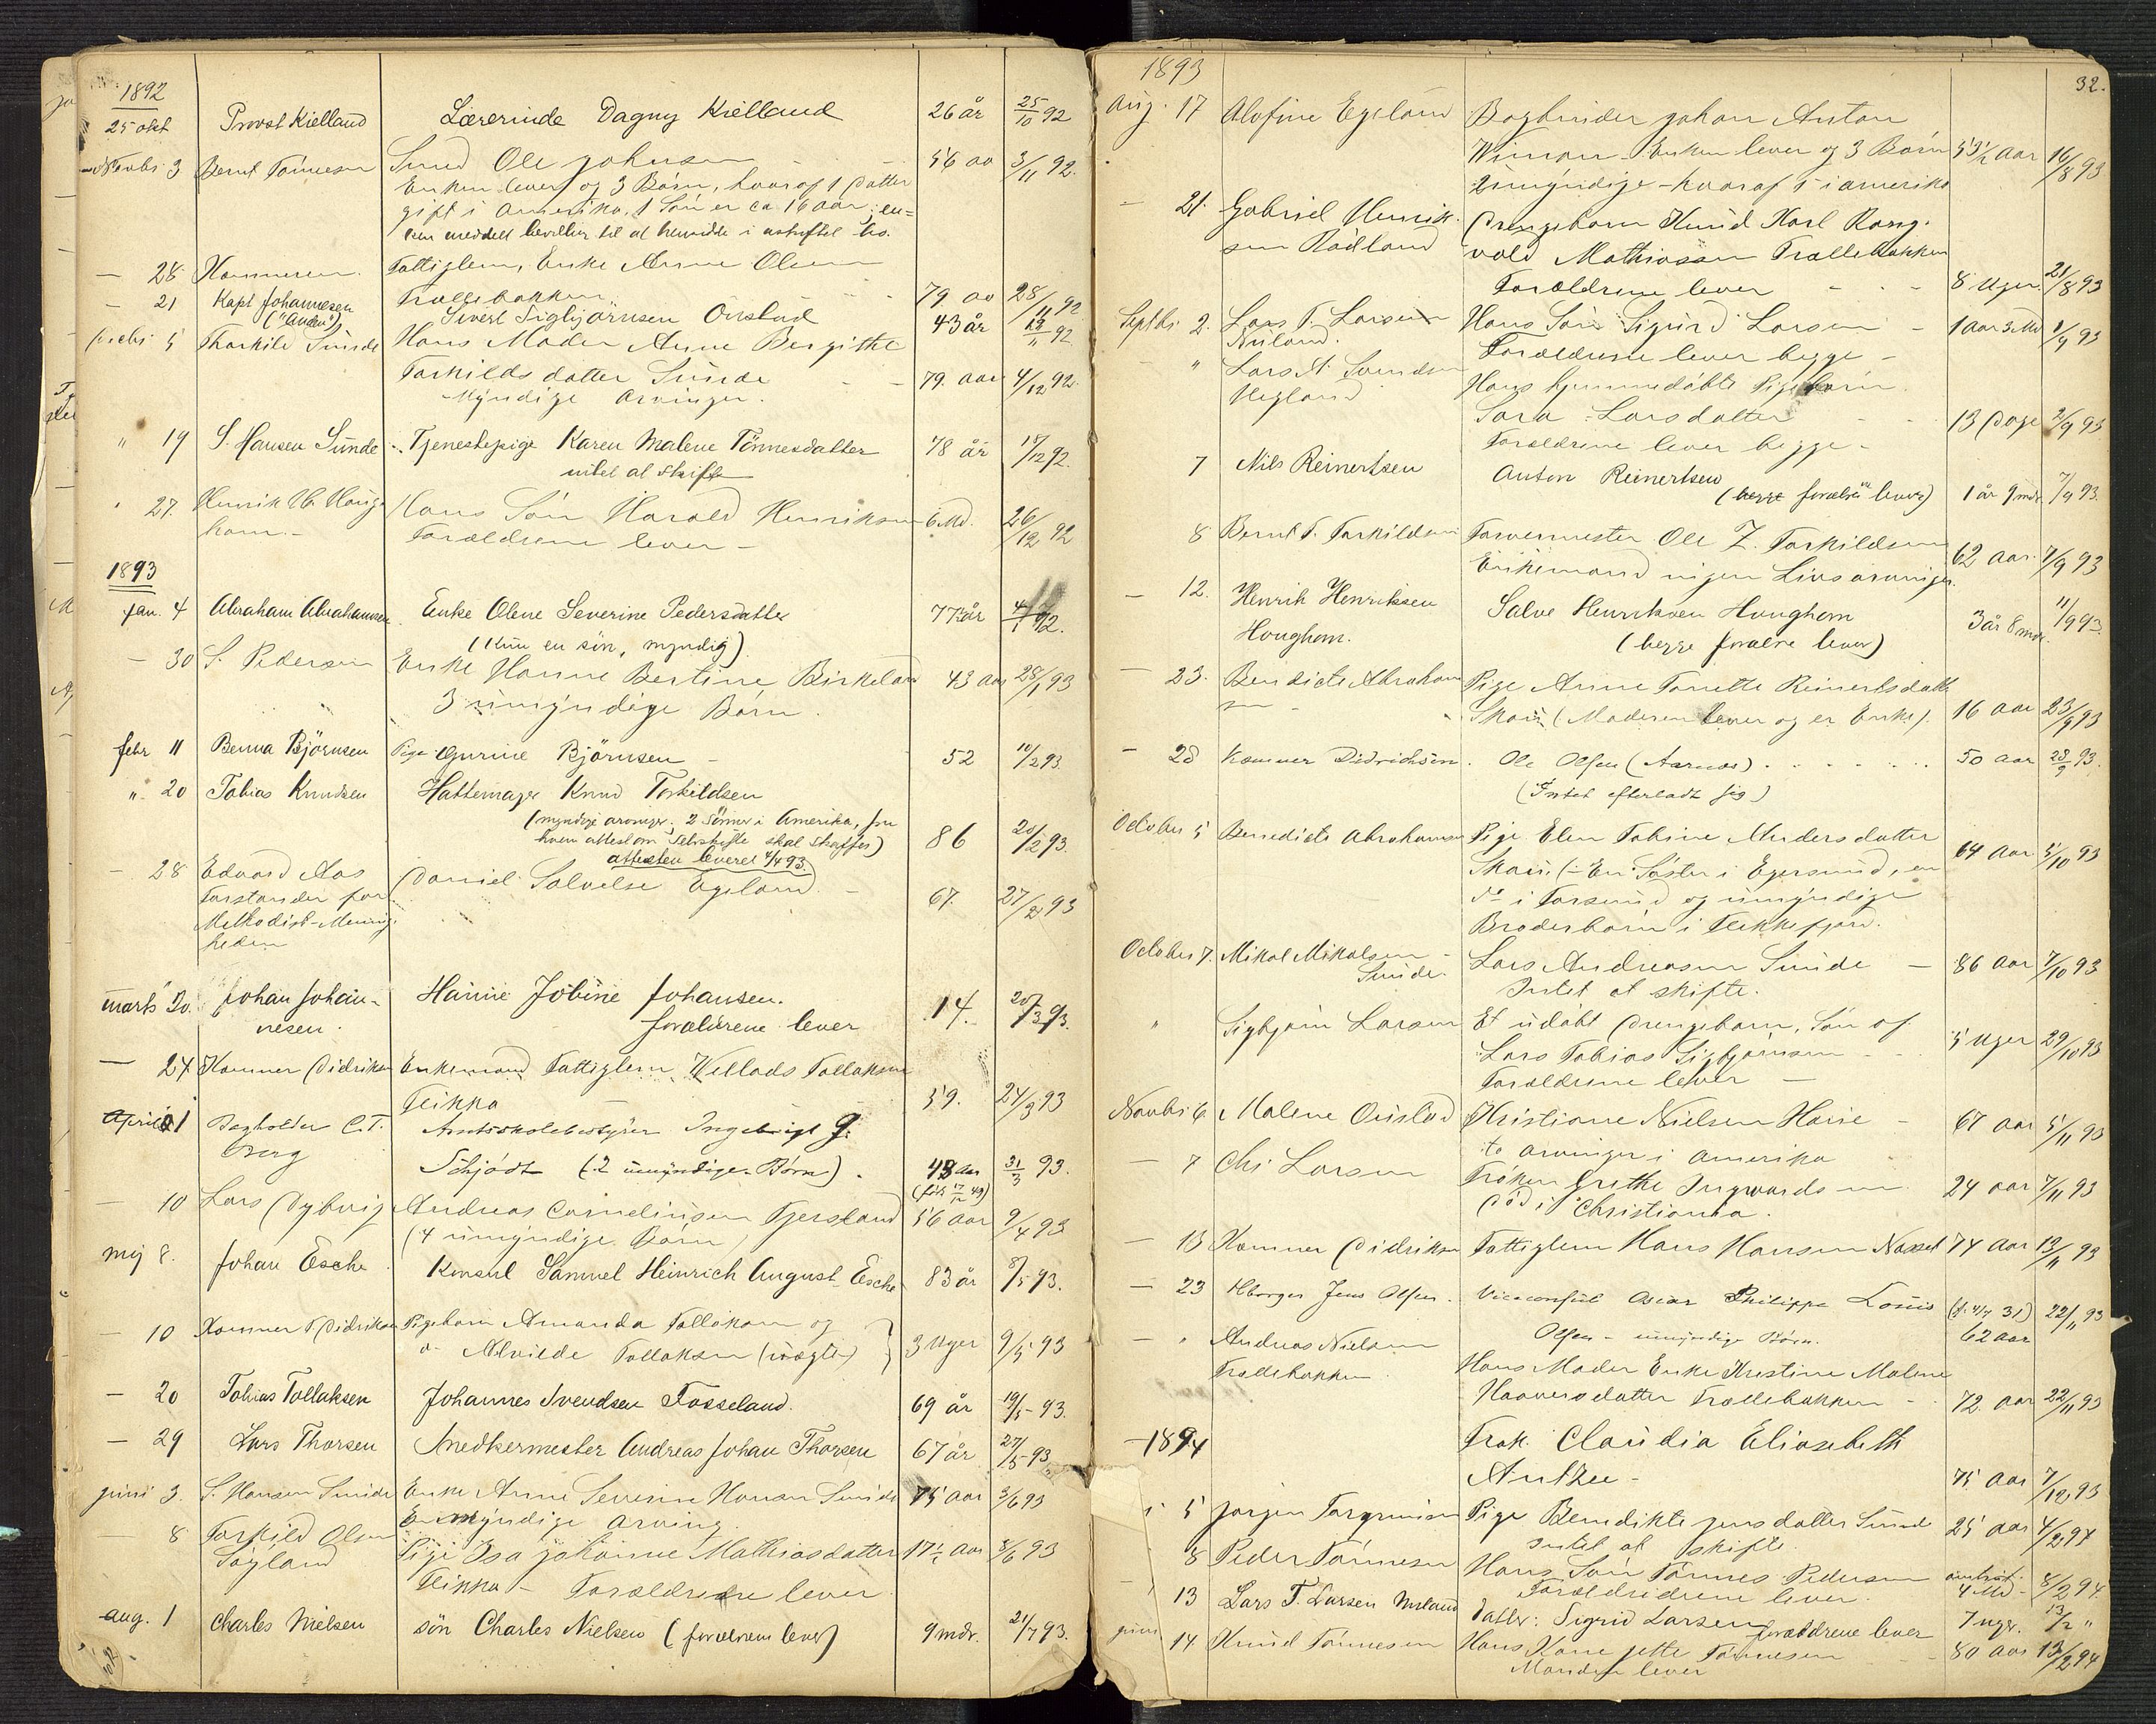 1892
25 okt Provst Kielland Lærerinde Dagny Kielland 26 år 25/10 92
Novbr 3 Bernt Tönnesen Smed Ole Johnsen 56 aa 3/11 92.
Enken lever og 3 Börn, hvoraf 1 Datter
gift i Amerika, 1 Sön er ca 16 aar; en=
ken meddelt bevilling til at hensidde i uskiftet bo.
— 28 Kæmneren. Fattiglem, Enke Anne Olsen
Trællebakken 79 aa 28/11 92
— 21 Kapt Johannesen Sivert Sigbjörnsen Ørstad 43 år 18/11 92
("Anden")
Decbr 5 Thorkild Sunde Hans Moder Anne Bergithe
Torkildsdatter Sunde 79. aar 4/12 92.
Myndige Arvinger.
" 19 S. Hansen Sunde Tjenestepige Karen Malene Tönnesdatter 78 år 18/12 92.
intet at skifte
" 27. Henrik H. Houg- Hans Sön Harald Henriksen 6 Md. 26/12 92
hom. Forældrene lever —
1893
Jan. 4 Abraham Abrahamsen Enke Olene Severine Pedersdatter 77 år 4/1 92.
(Kun en sön, myndig)
— 30 S. Pedersen Enke Hanne Bertine Birkeland 43 aar 28/1 93
3 umyndige Börn.
febr 11 Benna Björnsen Pige Gurine Björnsen 52 10/2 93
" 20 Tobias Knudsen Hattemager Knud Torkildsen
(myndige arvinger. 2 Sönner i Amerika, fra
hvem attest om Selvskifte skal skaffes) 86 20/2 93
attesten leveret 4/4 93.
— 28 Edvard Aas Daniel Salvesen Egeland. 67. 27/2 93
Forstander for
Methodist-Menig-
heden
marts 20. Johan Johan- Hanne Jobine Johansen. 14. 20/3 93.
nesen. forældrene lever
— 24 Kæmner Didriksen Enkemand Fattiglem Wellads Tollaksen
Flikka 59. 24/3 93
April 1 Bogholder C.T. Amtsskolebestyrer Ingebrigt G.
Berg Schjödt (2 umyndige Börn). 43 aar 31/3 93.
(föd 17/12 49)
— 10 Lars Dybvig Andreas Cornelinsen Fjersland 56 aar 9/4 93
(4 umyndige Börn)
Mai 8. Johan Esche Konsul Samuel Heinrich August Esche 83 år 8/5 93.
— 10 Kæmner Didriksen Pigebarn Amanda Tollaksen og
do Alvilde Tollaksen (uægte) 3 Uger 9/5 93
— 20 Tobias Tollaksen Johannes Svendsen Fosseland. 69 år 19/5 93.
— 29 Lars Thorsen Snedkermester Andreas Johan Thorsen 67 år 27/5 93
Juni 3. S. Hansen Sunde Enke Anne Severine Hansen Sunde 75 aar 3/6 93
En myndige arving.
— 8 Torkild Olsen Pige Isa Johanne Mathiasdatter 17½ aar 8/6 93
Söyland Flikka — Forældrene lever
aug. 1 Charles Nielsen sön Charles Nielsen (forældrene lever) 9 mdr. 21/7 93.
32.
1893
Aug. 17 Alofine Egeland Bogbinder Johan Anton
Wiman — Enken lever og 3 Börn 53½ Aar 16/8 93
2 umyndige — hvoraf 1 i Amerika
— 21. Gabriel Henrik- Drengebarn Knud Karl Rang-
sen Rödland vald Mathiassen Trællebakken
Forældrene lever 8 Uger. 21/8 93
Septbr. 2. Lars T. Larsen Hans Sön Sigurd Larsen 1 Aar 3 Md 1/9 93
Nuland. Forældrene lever begge —
" Lars N. Svendsen Hans hjemmedöbte Pigebarn
Hegland Sara Larsdatter 13 Dage 2/9 93
Forældrene lever begge —
7 Nils Reinertsen Anton Reinertsen
(begge forældre lever) 1 år 9 mdr 7/9 93.
8 Bernt T. Torkildsen Farvermester Ole Z. Torkildsen 62 Aar. 7/9 93
Enkemand ingen Livsarvinger.
— 12. Henrik Henriksen Salve Henriksen Hougham 3 år 8 mdr. 11/9 93.
Houghom. (begge forældre lever)
— 23. Benedicte Abraham- Pige Anne Tonette Reinertsdatter
sen Skau (Moderen lever og er Enke). 16 aar 23/9 93
— 28 Kæmner Didrichsen. Ole Olsen (Aarnæs) 50 aar 28/9 93.
(Intet efterladt sig)
October 5 Benedicte Abrahamsen Pige Elen Tobine Andersdatter
Skau. (— En Söster i Egersund, en 64 Aar 5/10 93
do i Farsund og umyndige
Broderbörn i Flekkefjord.
October 7. Mikal Mikalsen Lars Andreasen Sunde — 86 Aar 7/10 93
Sunde Intet at skifte.
" Sigbjörn Larsen Et udöbt Drengebarn, Sön af
Lars Tobias Sigbjörnsen 5 Uger 29/10 93
Forældrene lever —
Novbr. 6. Malene Øristad Kristiane Nielsen Haüe 67 aar 5/11 93
to arvinger i Amerika
— 7 Chr Larsen Fröken Grethe Ingwardsen 24 aar 7/11 93
Död i Christiania.
— 13 Kæmner Didriksen Fattiglem Hans Hansen Nasset 74 Aar 13/11 93
— 23 Hborger Jens Olsen. Viceconsul Oscar Philippe Louis (f. 4/4 31) 22/11 93
Olsen — umyndige Börn. 62 aar
— " Andreas Nielsen Hans Moder Enke Kirstine Malene
Trællebakken. Haaversdatter Trællebakken — 72. Aar 22/11 93
—1894 Frøk. Claudia Eliasebeth
Antzee — 75 Aar 7/12 93
5 Jörgen Torgrimsen Pige Benedikte Jensdatter Sunde 25 aar 4/2 94
Intet at skifte.
8 Peder Tönnesen Hans Sön Tönnes Pedersen 4 Md — 8/2 94.
Forældrene lever.
13 Lars T. Larsen Nuland datter: Sigrid Larsen forældrene lever 7 uger. 13/2 "
14 Knud Tönnesen Hans Kone Jette Tönnesen 80 aar 13/2 94
Manden lever